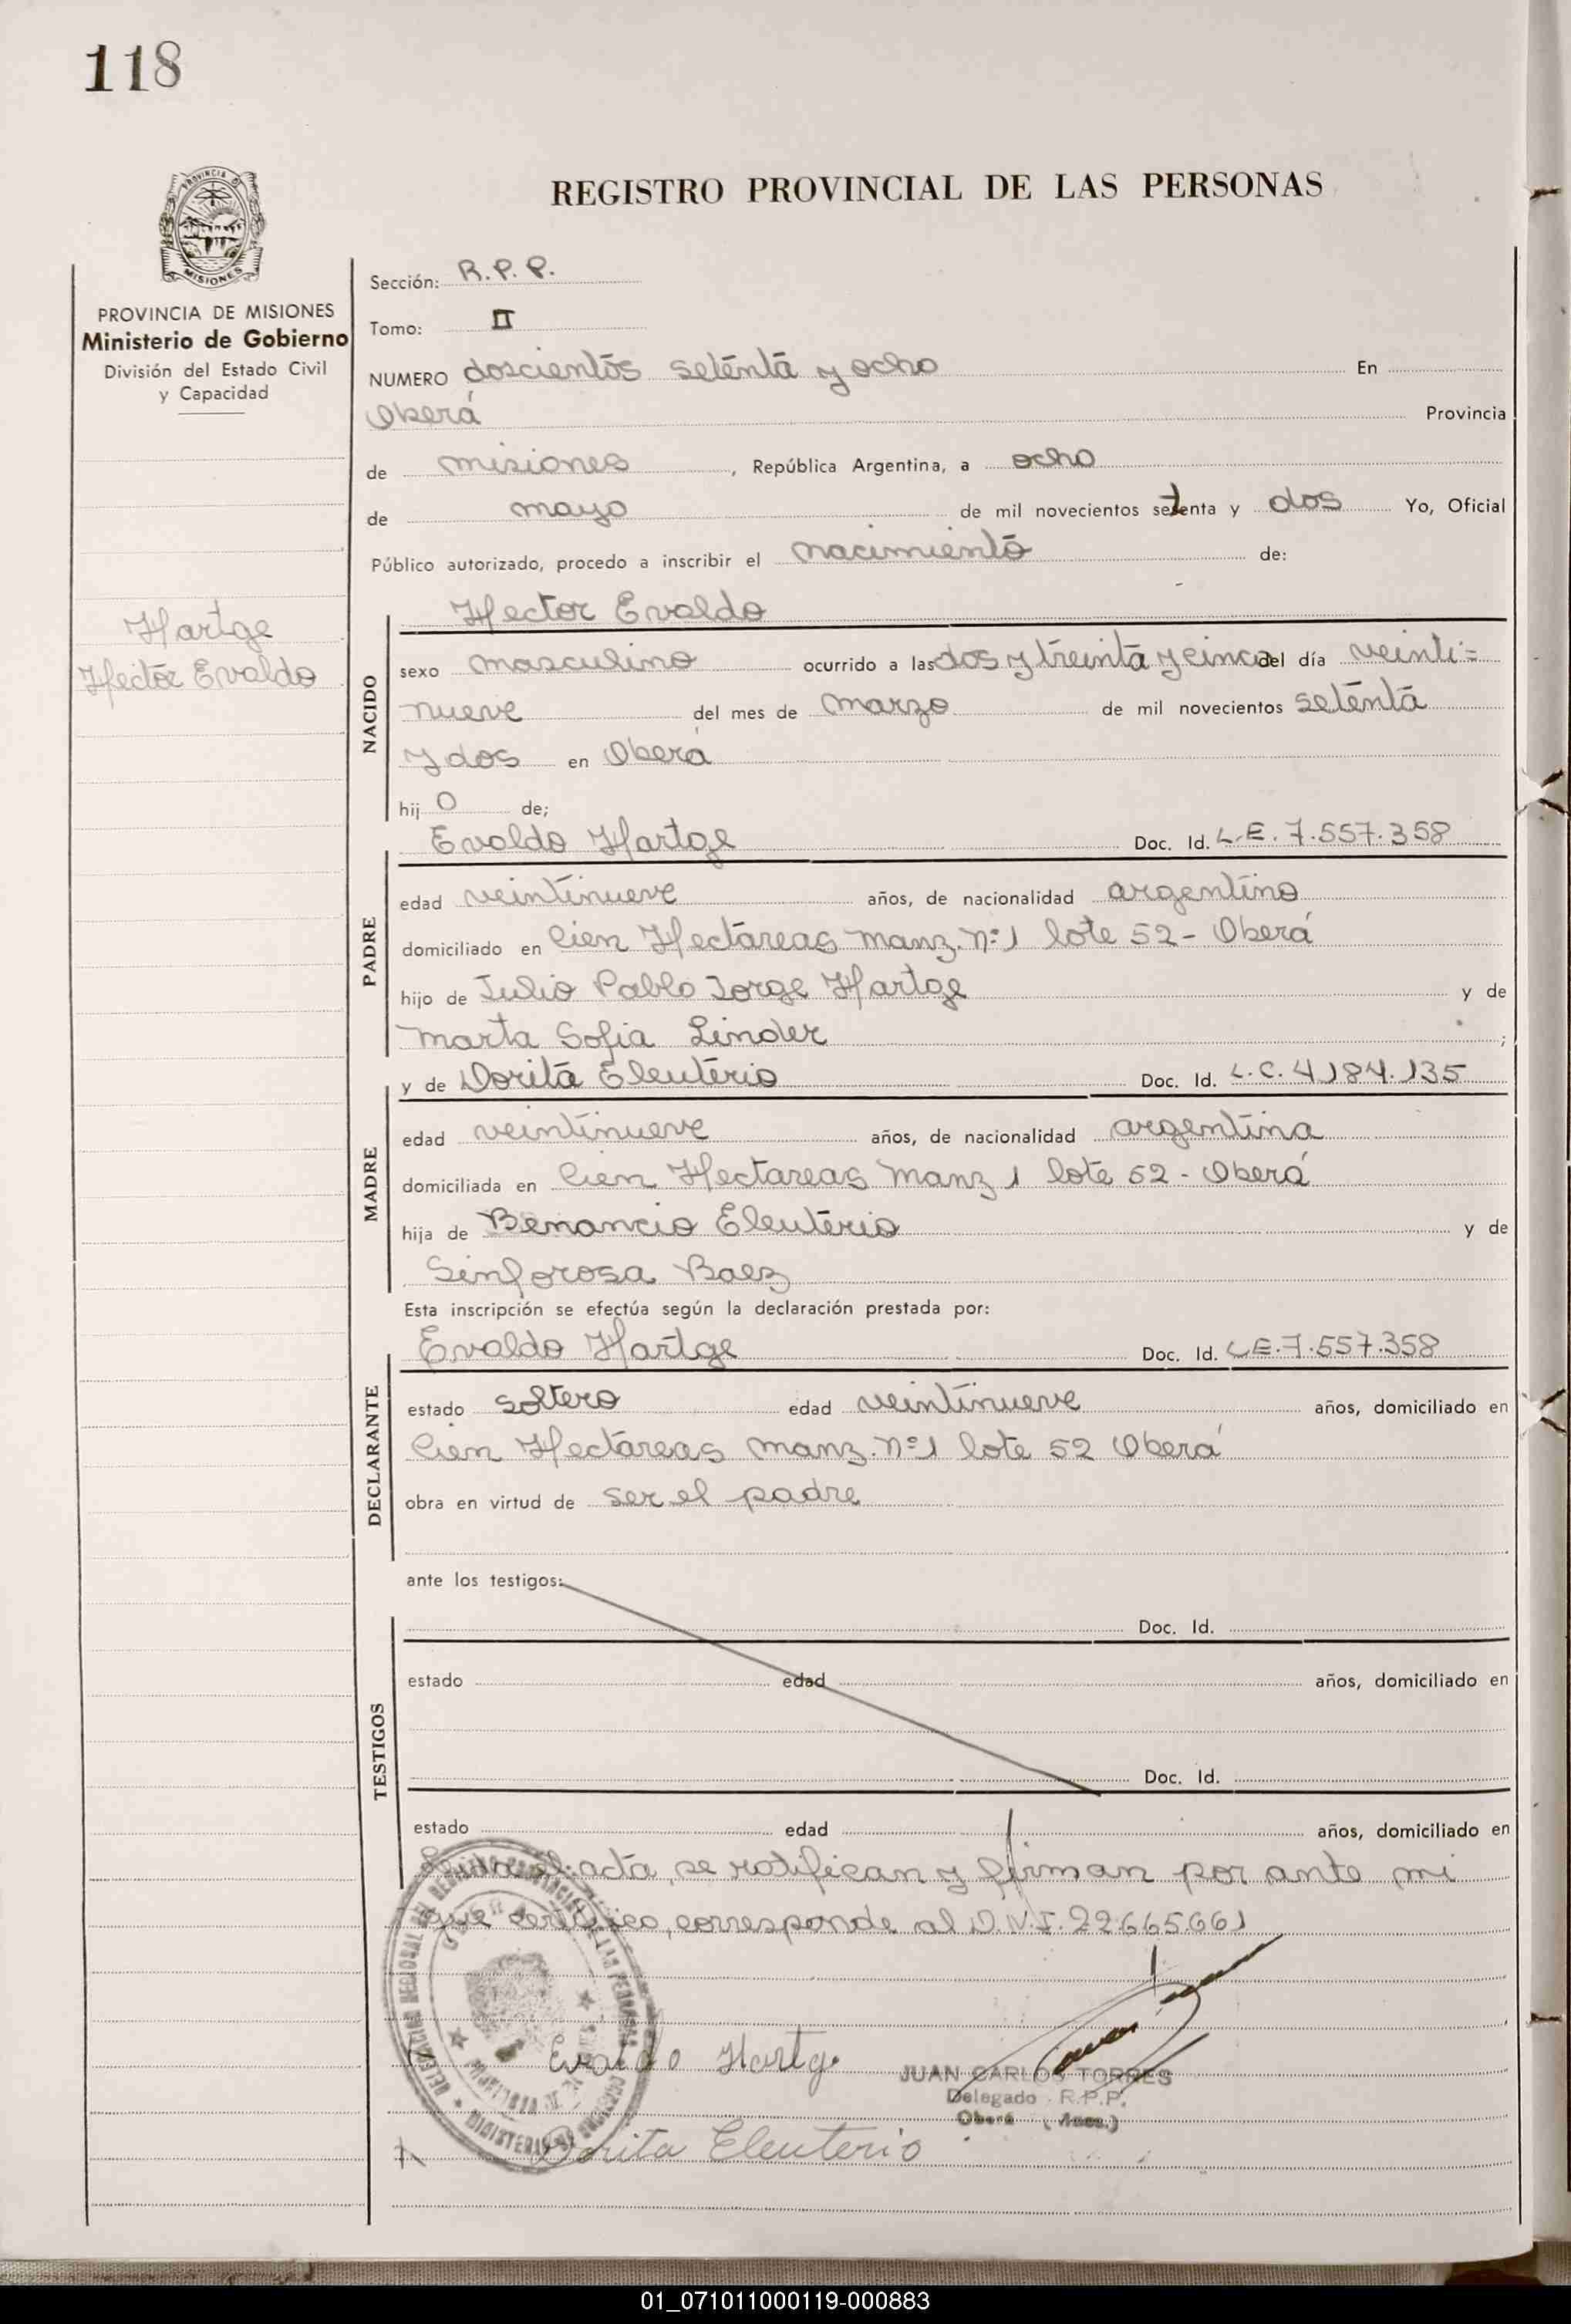 118
PROVINCIA
MISIONES
PROVINCIA DE MISIONES
Ministerio de Gobierno
División del Estado Civil
y Capacidad
Hartge
Hector Evaldo
REGISTRO PROVINCIAL DE LAS PERSONAS
Sección: R.P.P.
Tomo: II
NUMERO doscientos setenta y ocho En
Oberá Provincia
de misiones, República Argentina, a ocho
de mayo de mil novecientos setenta y dos Yo, Oficial
Público autorizado, procedo a inscribir el nacimiento de:
NACIDO
Hector Evaldo
sexo masculino ocurrido a las dos y treinta y cinco del día veinti=
nueve del mes de marzo de mil novecientos setenta
y dos en Oberá
hij o de;
PADRE
Evaldo Hartge Doc. Id. L.E. 7.557.358
edad veintinueve años, de nacionalidad argentino
domiciliado en Cien Hectareas manz. nº 1 lote 52 - Oberá
hijo de Julio Pablo Jorge Hartge y de
Marta Sofia Linder ;
MADRE
y de Dorita Eleuterio Doc. Id. L.C. 4.184.135
edad veintinueve años, de nacionalidad argentina
domiciliada en Cien Hectareas Manz 1 lote 52 - Oberá
hija de Benancio Eleuterio y de
Sinforosa Baez
Esta inscripción se efectúa según la declaración prestada por:
DECLARANTE
Evaldo Hartge Doc. Id. L.E. 7.557.358
estado soltero edad veintinueve años, domiciliado en
Cien Hectareas manz. nº 1 lote 52 Oberá
obra en virtud de ser el padre
ante los testigos:
TESTIGOS
Doc. Id.
estado edad años, domiciliado en
Doc. Id.
estado edad años, domiciliado en
Leida el acta, se ratifican y firman por ante mi
que certifico, corresponde al D.N.I. 22.665.661
Evaldo Hartge
JUAN CARLOS TORRES
Delegado R.P.P.
Oberá (Mnes.)
Dorita Eleuterio
01_071011000119-000883